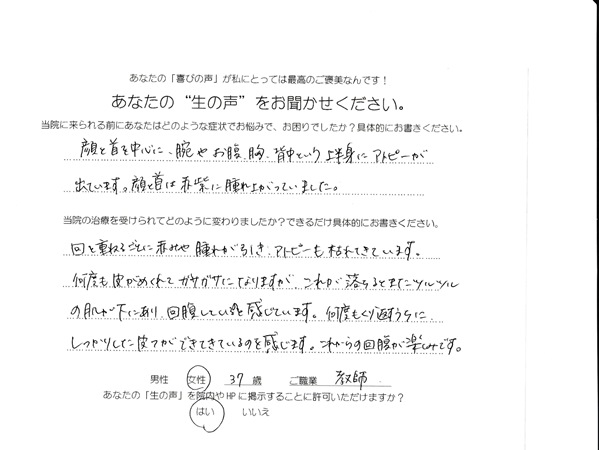 あなたの「喜びの声」が私にとっては最高のご褒美なんです！
あなたの“生の声”をお聞かせください。
当院に来られる前にあなたはどのような症状でお悩みで、お困りでしたか？具体的にお書きください。
顔と首を中心に、腕やお腹、胸、背中という上半身にアトピーが
出ています。顔と首は赤紫に腫れ上がっていました。
当院の治療を受けられてどのように変わりましたか？できるだけ具体的にお書きください。
回を重ねるごとに赤みや腫れが引き、アトピーも枯れてきています。
何度も皮がめくれてガサガサになりますが、これが落ちるとまたツルツル
の肌が下にあり、回腹している感じています。何度もくり返すうちに
しっかりした皮フができてきているのを感じます。これからの回腹が楽しみです。
男性 女性 37 歳 ご職業 教師
あなたの「生の声」を院内やHPに掲示することに許可いただけますか？
はい いいえ